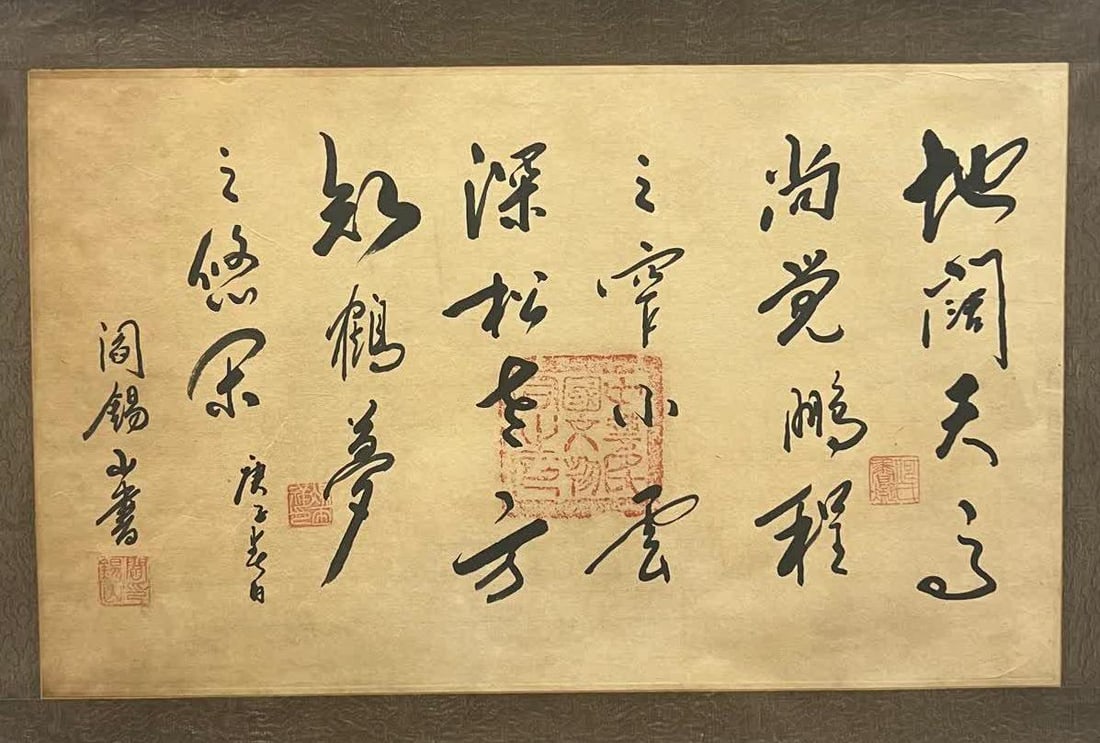 地闊天高
尚覺鵬程
之窄小雲
深松老方
知鶴夢
之悠閑
庚子春日
閻錫山書
閻印錫山